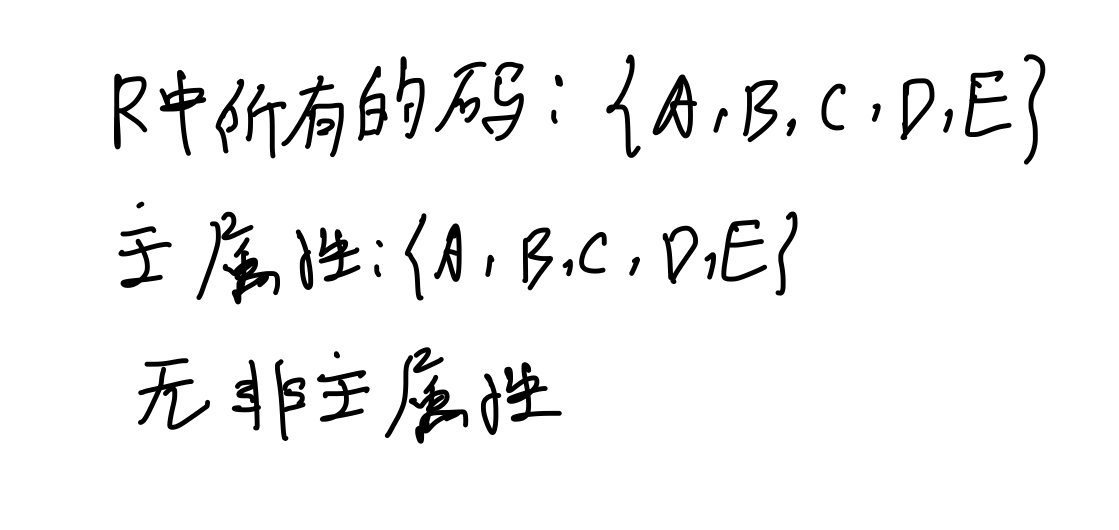 R中所有的码：{A,B,C,D,E}
主属性:{A,B,C,D,E}
无非主属性